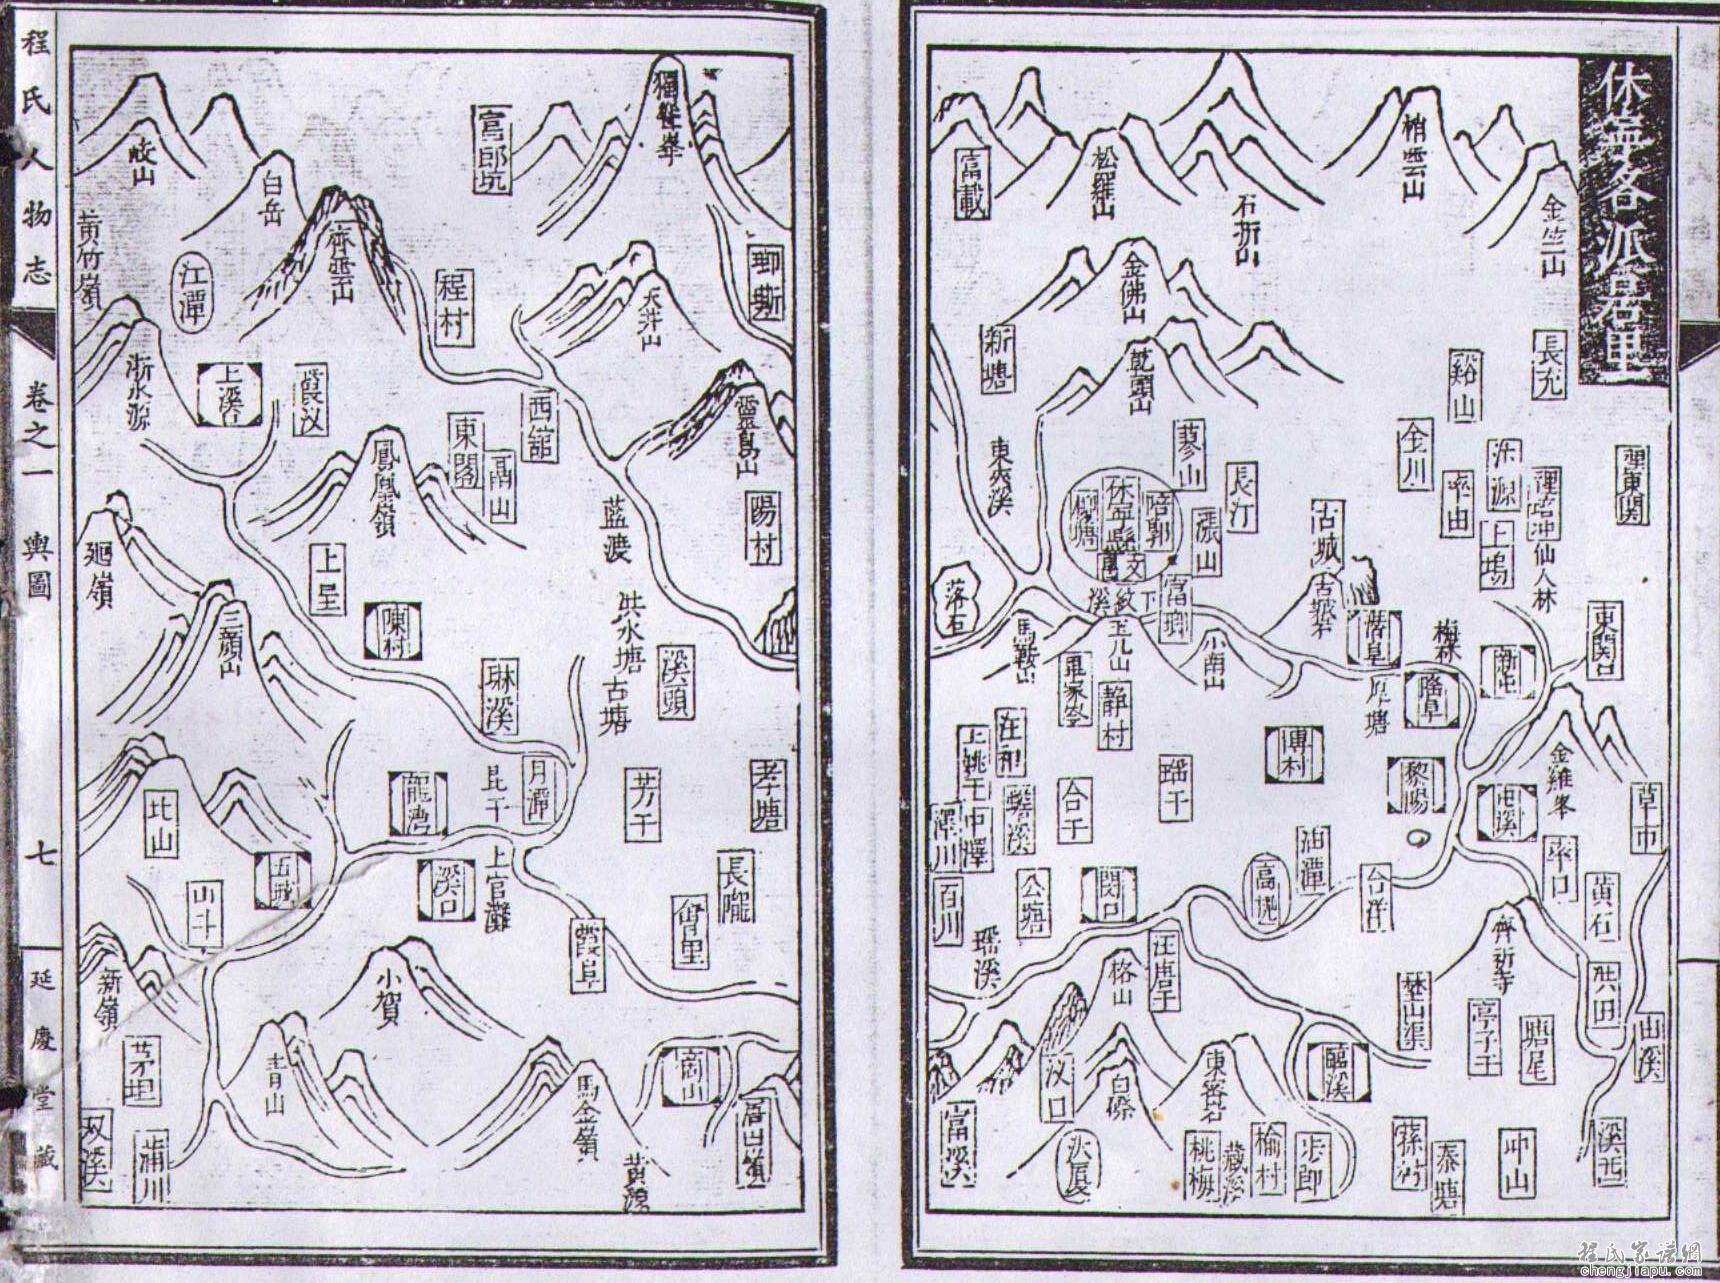 休寧各派居圖
金竺山
梢雲山
石斬山
松羅山
富載
金佛山
乾頭山
新塘
長允
谿山
金川
蓼山
長汀
東夾溪
休寧縣
陪郭
柳塘
漲山
古城
率由
上塢
仙人林
東關口
落石
馬鞍山
玉几山
小南山
古城岩
梅林
隆阜
厚塘
靜村
汪和
上姚干
中澤
澤川
百川
合干
瑶干
博村
黎陽
屯溪
金羅峯
草市
率口
黄石
油潭
高挑
台洋
閔口
公塘
瑶溪
格山
汪唐干
齊祈寺
洪田
亭子干
塘尾
山溪
臨溪
汊口
白際
東密岩
富溪
桃梅
藏溪
榆村
步郎
泰塘
冲山
溪西
程氏人物志
卷之一
輿圖
七
延慶堂藏
獨聳峯
富郎坑
岐山
白岳
齊雲山
黄竹嶺
江潭
程村
天井山
浙水源
上溪口
西舘
東閣
鳳凰嶺
藍渡
陽村
上呈
陳村
三顏山
洪水塘
古塘
溪頭
琳溪
月潭
昆干
龍湾
芳干
孝塘
比山
五城
溪口
上官灘
長隴
山斗
霞阜
新嶺
小賀
茅坦
青山
馬金嶺
黄源
双溪
蒲川
程氏家谱網
chengjiapu.com